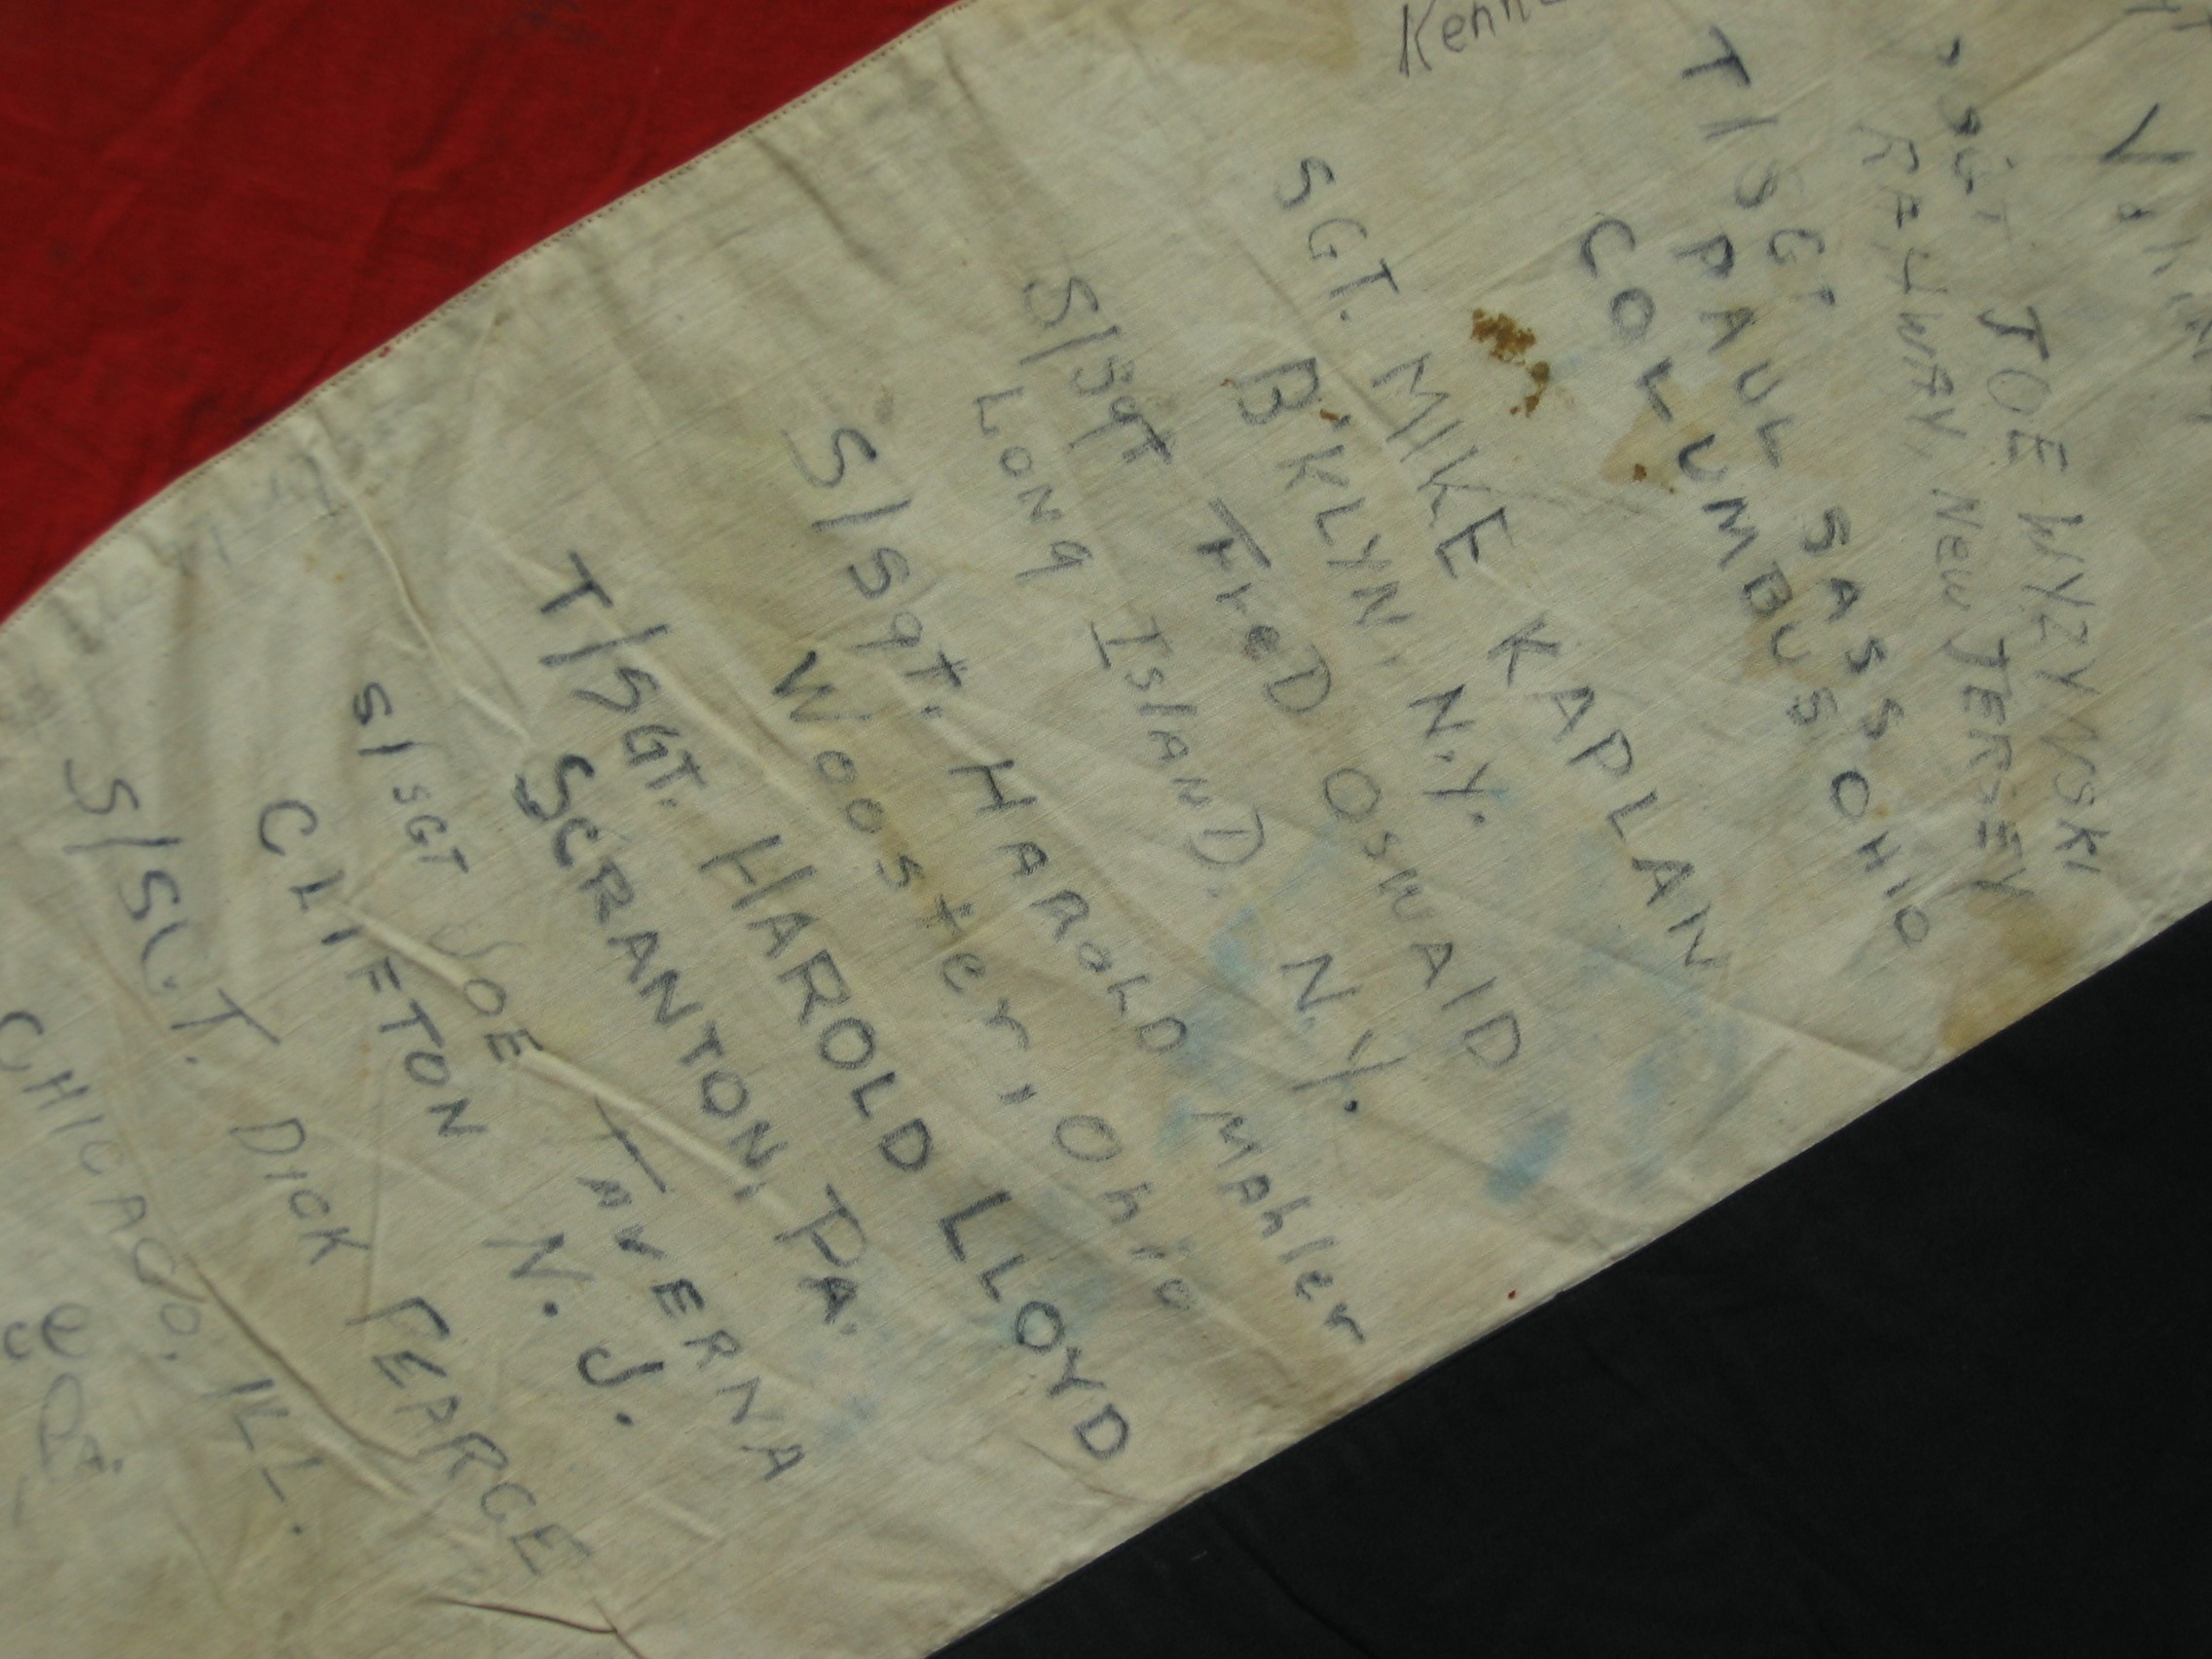 T/SGT.
PAUL SASSO
COLUMBUS OHIO
JOE WYZYNSKI
RAHWAY, NEW JERSEY
SGT. MIKE KAPLAN
B'KLYN, N.Y.
S/Sgt FreD OswAlD
LONg IslAND. N.Y.
S/Sgt. HARoLD MAhler
Wooster, Ohio
T/SGT. HAROLD LLOYD
SCRANTON, PA.
S/SGT JOE TAVERNA
CLIFTON N.J.
S/SGT. DICK
CHICAGO, ILL.